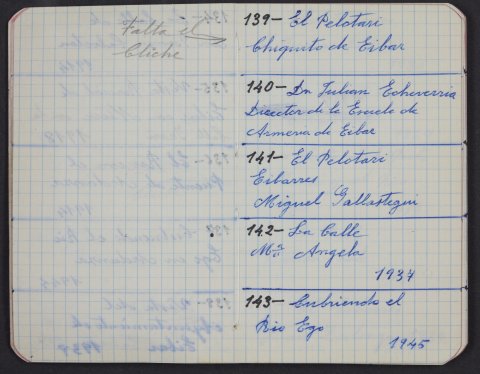 Falta el
Cliché
139- El Pelotari
Chiquito de Eibar
140- Dn Julian Echeverria
Director de la Escuela de
Armeria de Eibar
141- El Pelotari
Eibarres
Miguel Gallastegui
142- La Calle
Mª Angela
1937
143- Cubriendo el
Rio Ego
1945